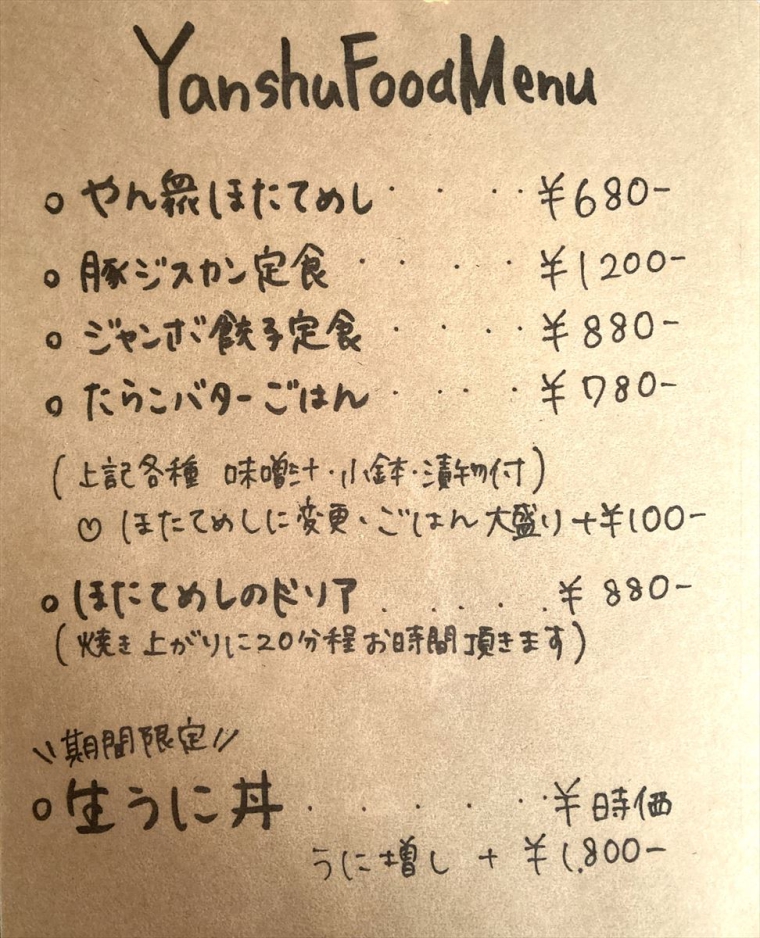 YanshuFoodMenu
○ やん衆ほたてめし・・・・¥680-
○ 豚ジスカン定食・・・・・¥1200-
○ ジャンボ餃子定食・・・・¥880-
○ たらこバターごはん・・・・¥780-
(上記各種 味噌汁・小鉢・漬物付)
♡ ほたてめしに変更・ごはん大盛り+¥100-
○ ほたてめしのドリア.....¥880-
(焼き上がりに20分程お時間頂きます)
\\期間限定//
○ 生うに丼・・・・・・¥時価
うに増し + ¥1,800-